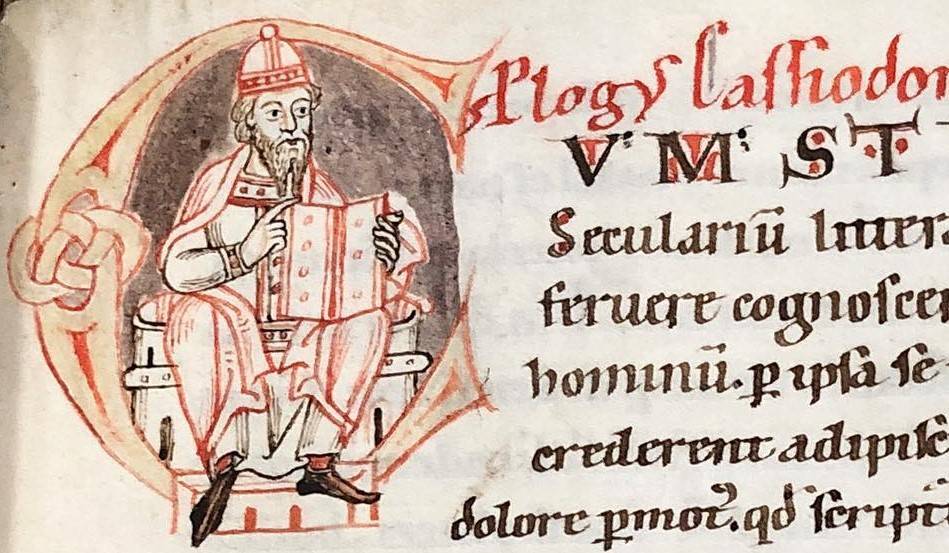 Plogꝰ Cassiodor
CVM ST
Seculariū litter
feruere cognoscer
hominū. ꝑ ipsa se
crederent adipisc
dolore ꝑmotꝰ. qđ script